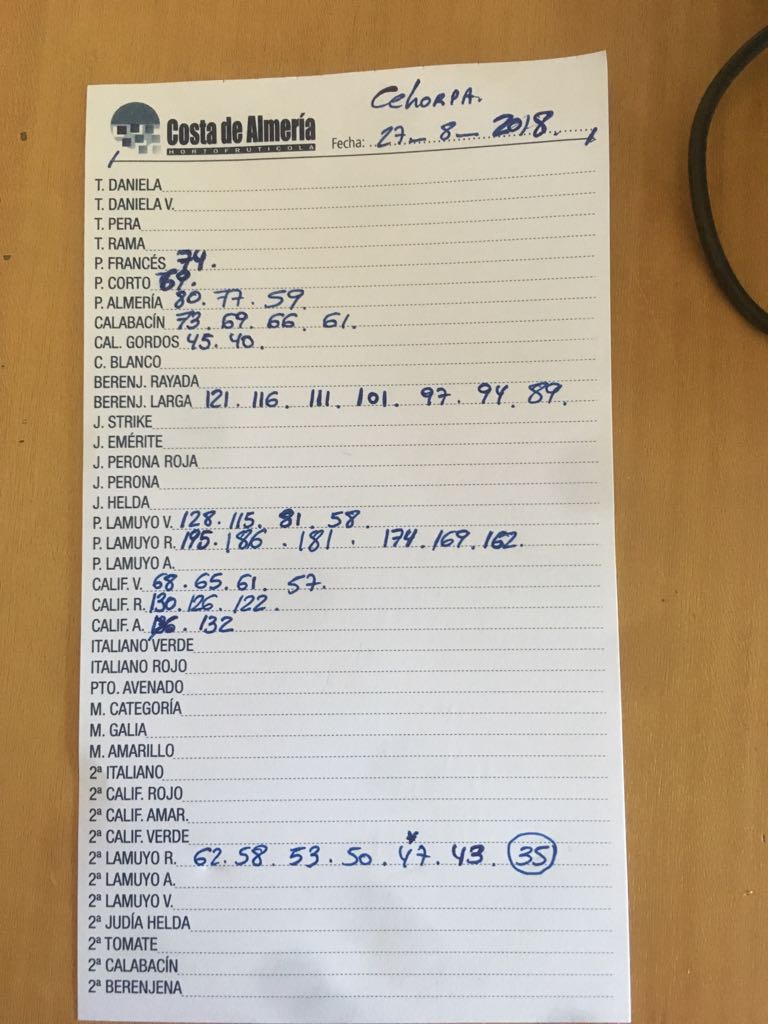 CehORPA.
Costa de Almería
HORTOFRUTICOLA
Fecha: 27-8-2018.
T. DANIELA
T. DANIELA V.
T. PERA
T. RAMA
P. FRANCÉS 74.
P. CORTO 69.
P. ALMERÍA 80. 77. 59
CALABACÍN 73. 69. 66. 61.
CAL. GORDOS 45. 40.
C. BLANCO
BERENJ. RAYADA
BERENJ. LARGA 121. 116. 111. 101. 97. 94. 89.
J. STRIKE
J. EMÉRITE
J. PERONA ROJA
J. PERONA
J. HELDA
P. LAMUYO V. 128. 115. 81. 58.
P. LAMUYO R. 195. 186. 181. 174. 169. 162.
P. LAMUYO A.
CALIF. V. 68. 65. 61. 57.
CALIF. R. 130. 126. 122.
CALIF. A. 132
ITALIANO VERDE
ITALIANO ROJO
PTO. AVENADO
M. CATEGORÍA
M. GALIA
M. AMARILLO
2ª ITALIANO
2ª CALIF. ROJO
2ª CALIF. AMAR.
2ª CALIF. VERDE
2ª LAMUYO R. 62. 58. 53. 50. 47. 43. 35
2ª LAMUYO A.
2ª LAMUYO V.
2ª JUDÍA HELDA
2ª TOMATE
2ª CALABACÍN
2ª BERENJENA